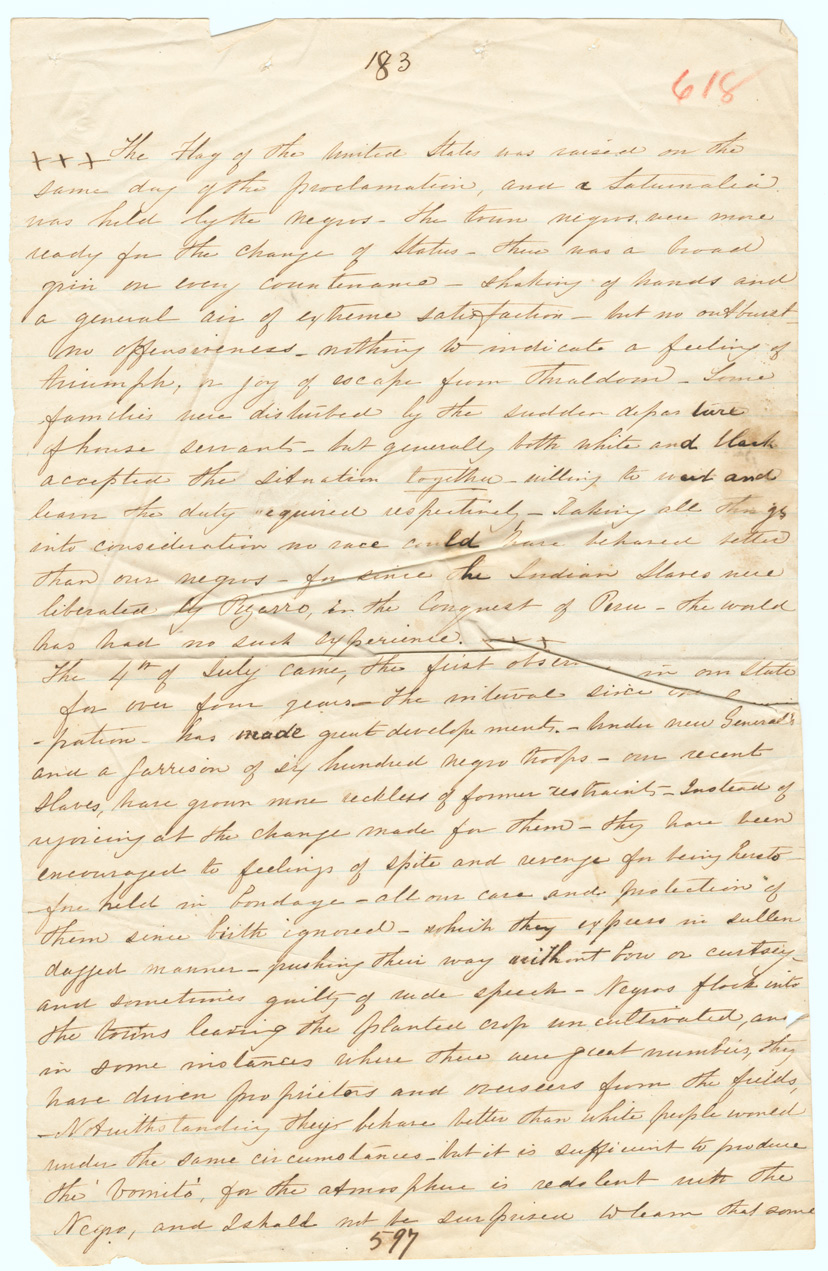 183
618
+++ The Flag of the United States was raised on the
same day of the proclamation, and a Saturnalia
was held by the negros - The town negros were more
ready for the change of Status - there was a broad
grin on every countenance - shaking of hands and
a general air of extreme satisfaction - but no outburst -
no offensiveness - nothing to indicate a feeling of
triumph, or joy of escape from thraldom - Some
families were disturbed by the sudden departure
of house servants - but generally both white and black
accepted the situation together - willing to wait and
learn the duty required respectively - Taking all things
into consideration no race could have behaved better
than our negros - for since the Indian Slaves were
liberated by Pizarro, in the Conquest of Peru - the world
has had no such experience. +++
The 4th of July came, the first in our State
for over four years - The interval since
- pation - has made great developements. - Under new General's
and a garrison of six hundred negro troops - our recent
slaves, have grown more reckless of former restraint - Instead of
rejoicing at the change made for them - they have been
encouraged to feelings of spite and revenge for being hereto-
-fore held in bondage - all our care and protection of
them since birth ignored - which they express in sullen
dogged manner - pushing their way without bow or curtsey -
and sometimes guilty of rude speech - Negros flock into
the towns leaving the planted crop uncultivated, and
in some instances where there were great numbers, they
have driven proprietors and overseers from the fields,
- Notwithstanding they behave better than white people would
under the same circumstances - but it is sufficient to produce
the 'vomito', for the atmosphere is redolent with the
Negro, and I shall not be surprised to learn that some
597